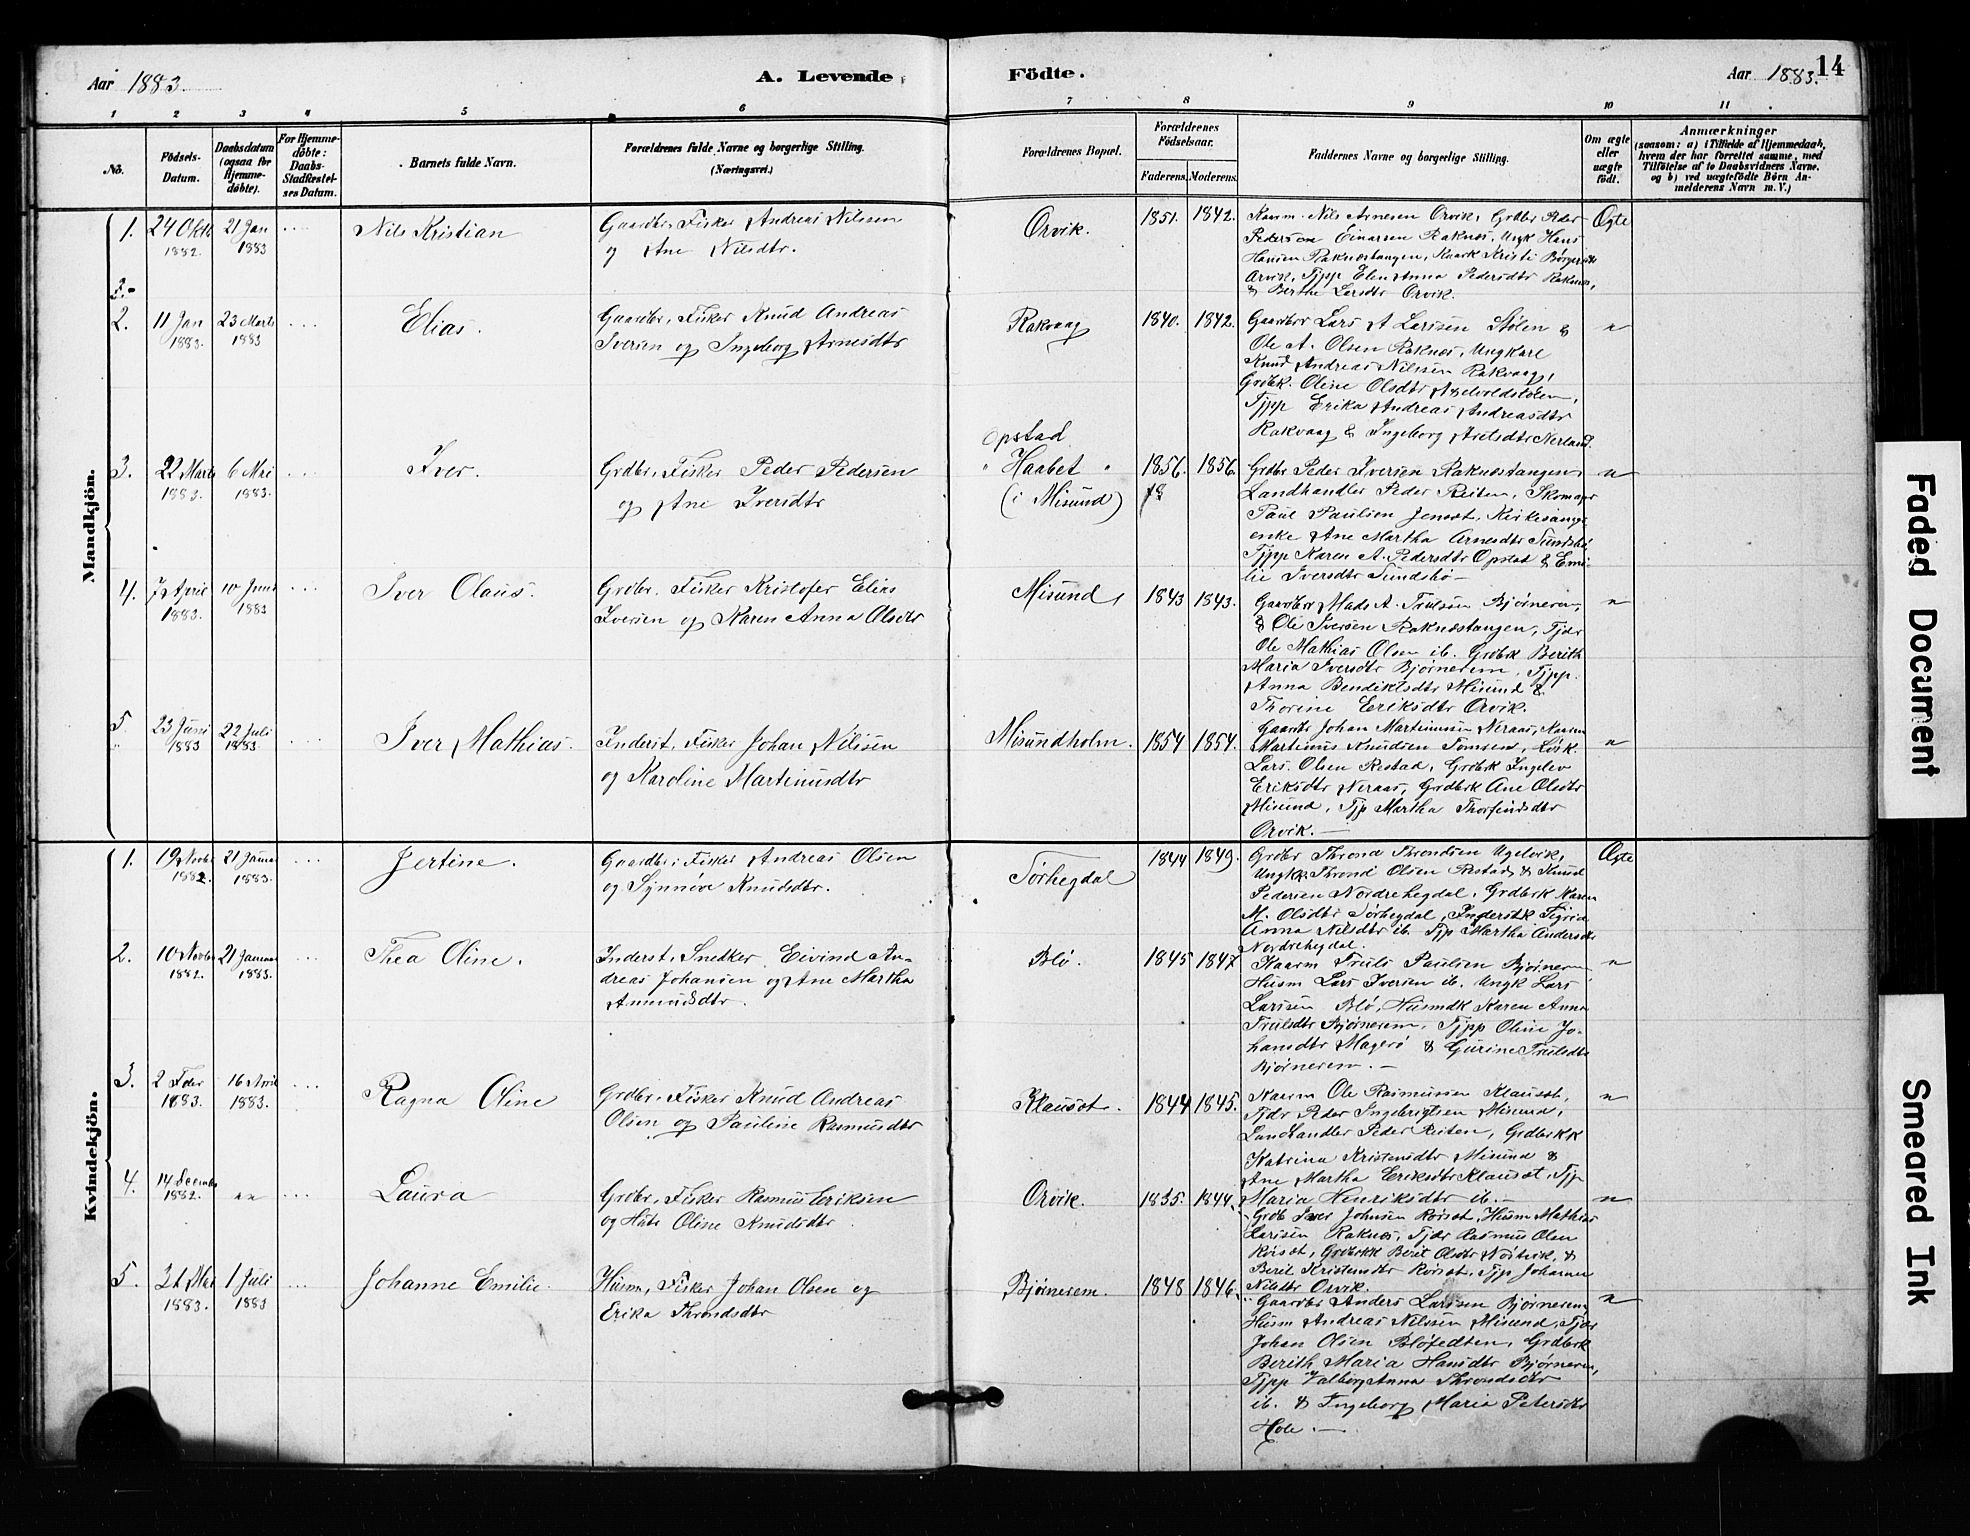 Aar 1883. A. Levende Födte. Aar 1883. 14
1 2 3 4 5 6 7 8 9 10 11
No.
Födsels-Datum.
Daabsdatum (ogsaa for Hjemme-döbte).
For Hjemme-döbte: Daabs-Stadfæstel-ses Datum.
Barnets fulde Navn.
Forældrenes fulde Navne og borgerlige Stilling.
(Næringsvei.)
Forældrenes Bopæl.
Forældrenes Födselsaar.
Faderens. Moderens.
Faddernes Navne og borgerlige Stilling.
Om ægte eller uægte födt.
Anmærkninger
(saasom: a) i Tilfælde af Hjemmedaab,
hvem der har forrettet samme, med
Tilföielse af to Daabsvidners Navne,
og b) ved uægtefödte Börn An-
melderens Navn m. V.)
Mandkjön.
1. 24 Okt 1882. 21 Jan 1883 Nils Kristian
Gaardbr, Fisker Andreas Nilssen
og Ane Nilsdtr.
Orvik. 1851. 1842.
Kaarm. Nils Arnesen Orvik, Grdbr Peder
Pedersen Einarsen Raknæs, Ungk Hans
Hansen Raknæstangen, Kaark Kristi
Orvik, Tjpp Elen Anna Pedersdtr Raknæs,
& Berthe Larsdtr Orvik.
Ægte
2. 11 Jan 1883. 23 Marts 1883 Elias.
Gaardbr, Fisker Knud Andreas
Iversen og Ingeborg Arnesdtr
Rakvaag 1840. 1842.
Gaardbr Lars A Larssen Stølen &
Ole A. Olsen Raknæs, Ungkarl
Knud Andreas Nilssen Rakvaag,
Grdbk. Oline Olsdtr
Tjpp Erika Andreas Andreasdtr
Rakvaag & Ingeborg Nerland.
"
3. 22 Marts 1883. 6 Mai 1883. Iver.
Grdbr, Fisker Peder Pedersen
og Ane Iversdtr
Opstad
" Haabet "
(i Misund)
1856. 1856.
18
Grdbr Peder Iversen Raknæstangen
Landhandler Peder Reiten, Skomager
Paul Paulsen Jenset, Kirkesang.
enke Ane Martha Arnesdtr Sundsbø
Tjpp Karen A. Pedersdtr Opstad & Emi-
lie Iversdtr Sundsbø —
"
4. 7 April 1883. 10 Juni 1883 Iver Olaus.
Grdbr. Fisker Kristofer Elias
Iversen og Karen Anna Olsdtr
Misund, 1843 1843.
Gaardbr Mads A. Trulssen Bjørnerem,
& Ole Iversen Raknæstangen, Tjdr
Ole Mathias Olsen ib. Grdbrk Berith
Maria Iversdtr Bjørnerem, Tjpp.
Anna Bendiktsdtr Misund &
Thorine Eriksdtr Orvik.
"
5. 23 Juni 1883 22 Juli 1883. Iver Mathias.
Inderst, Fisker Johan Nilssen
og Karoline Martinusdtr
Misundholm. 1854 1854.
Gaardbr Johan Martinussen Neraas, Kaarm
Martinus Knudsen Tomren,
Lars Olsen Restad, Grdbrk Ingelev
Eriksdtr Neraas, Grdbrk Ane Olsdtr
Misund, Tjp Martha Thorfindsdtr
Orvik. —
"
Kvindekjön.
1. 19 Novbr 1882. 21 Januar 1883. Jertine.
Gaardbr, Fisker Andreas Olsen
og Synnøve Knudsdtr.
Sørhegdal 1844 1849.
Grdbr Thrond Throndsen Ugelvik,
Ungk. Thrond Olsen Restad & Knud
Pedersen Nordrehegdal, Grdbrk Karen
M. Olsdtr Sørhegdal, Inderstk Sigrid
Anna Nilsdtr ib. Tjp Martha Andersdtr
Nordrehegdal.
Ægte
2. 10 Novbr 1882. 21 Januar 1883. Thea Oline.
Inderst, Snedker Eivind An-
dreas Johansen og Ane Martha
Amundsdtr.
Blø. 1845 1847
Kaarm Truls Paulsen Bjørnerem
Husm Lars Iversen ib. Ungk Lars
Larssen Blø, Husmdk Karen Anna
Trulsdtr Bjørnerem, Tjpp Oline Jo-
hansdtr Magerø & Gurine Trulsdtr
Bjørnerem. —
"
3. 2 Febr 1883. 16 April 1883. Ragna Oline
Grdbr, Fisker Knud Andreas
Olsen og Pauline Rasmusdtr
Klauset. 1844 1845.
Kaarm Ole Rasmussen Klauset,
Tjdr Peder Ingebrigtsen Misund,
Landhandler Peder Reiten, Grdbrkk
Katrina Kristensdtr Misund &
Ane Martha Eriksdtr Klauset, Tjp
Maria Henriksdtr ib. —
"
4. 14 Decembr 1882. " " Laura
Grdbr, Fisker Rasmus Eriksen
og Hustr Oline Knudsdtr
Orvik. 1835. 1844.
Grdb Iver Johnsen Røiset, Husm Mathias
Larssen Raknæs, Tjdr Rasmus Olsen
Røiset, Grdbrkk Berit Olsdtr &
Berit Kristensdtr Røiset, Tjp Johanne
Nilsdtr Orvik.
"
5. 31 Mai 1883. 1 Juli 1883 Johanne Emilie.
Husm, Fisker Johan Olsen og
Erika Throndsdtr
Bjørnerem. 1848 1846.
Gaardbr Anders Larssen Bjørnerem
Husm Andreas Nilssen Misund, Tjdr
Johan Olsen Grdbrk
Berith Maria Hansdtr Bjørnerem,
Tjpp Valborg Anna Throndsdtr
ib. & Ingeborg Maria Petersdtr
Hole. —
"
Faded Document
Smeared Ink